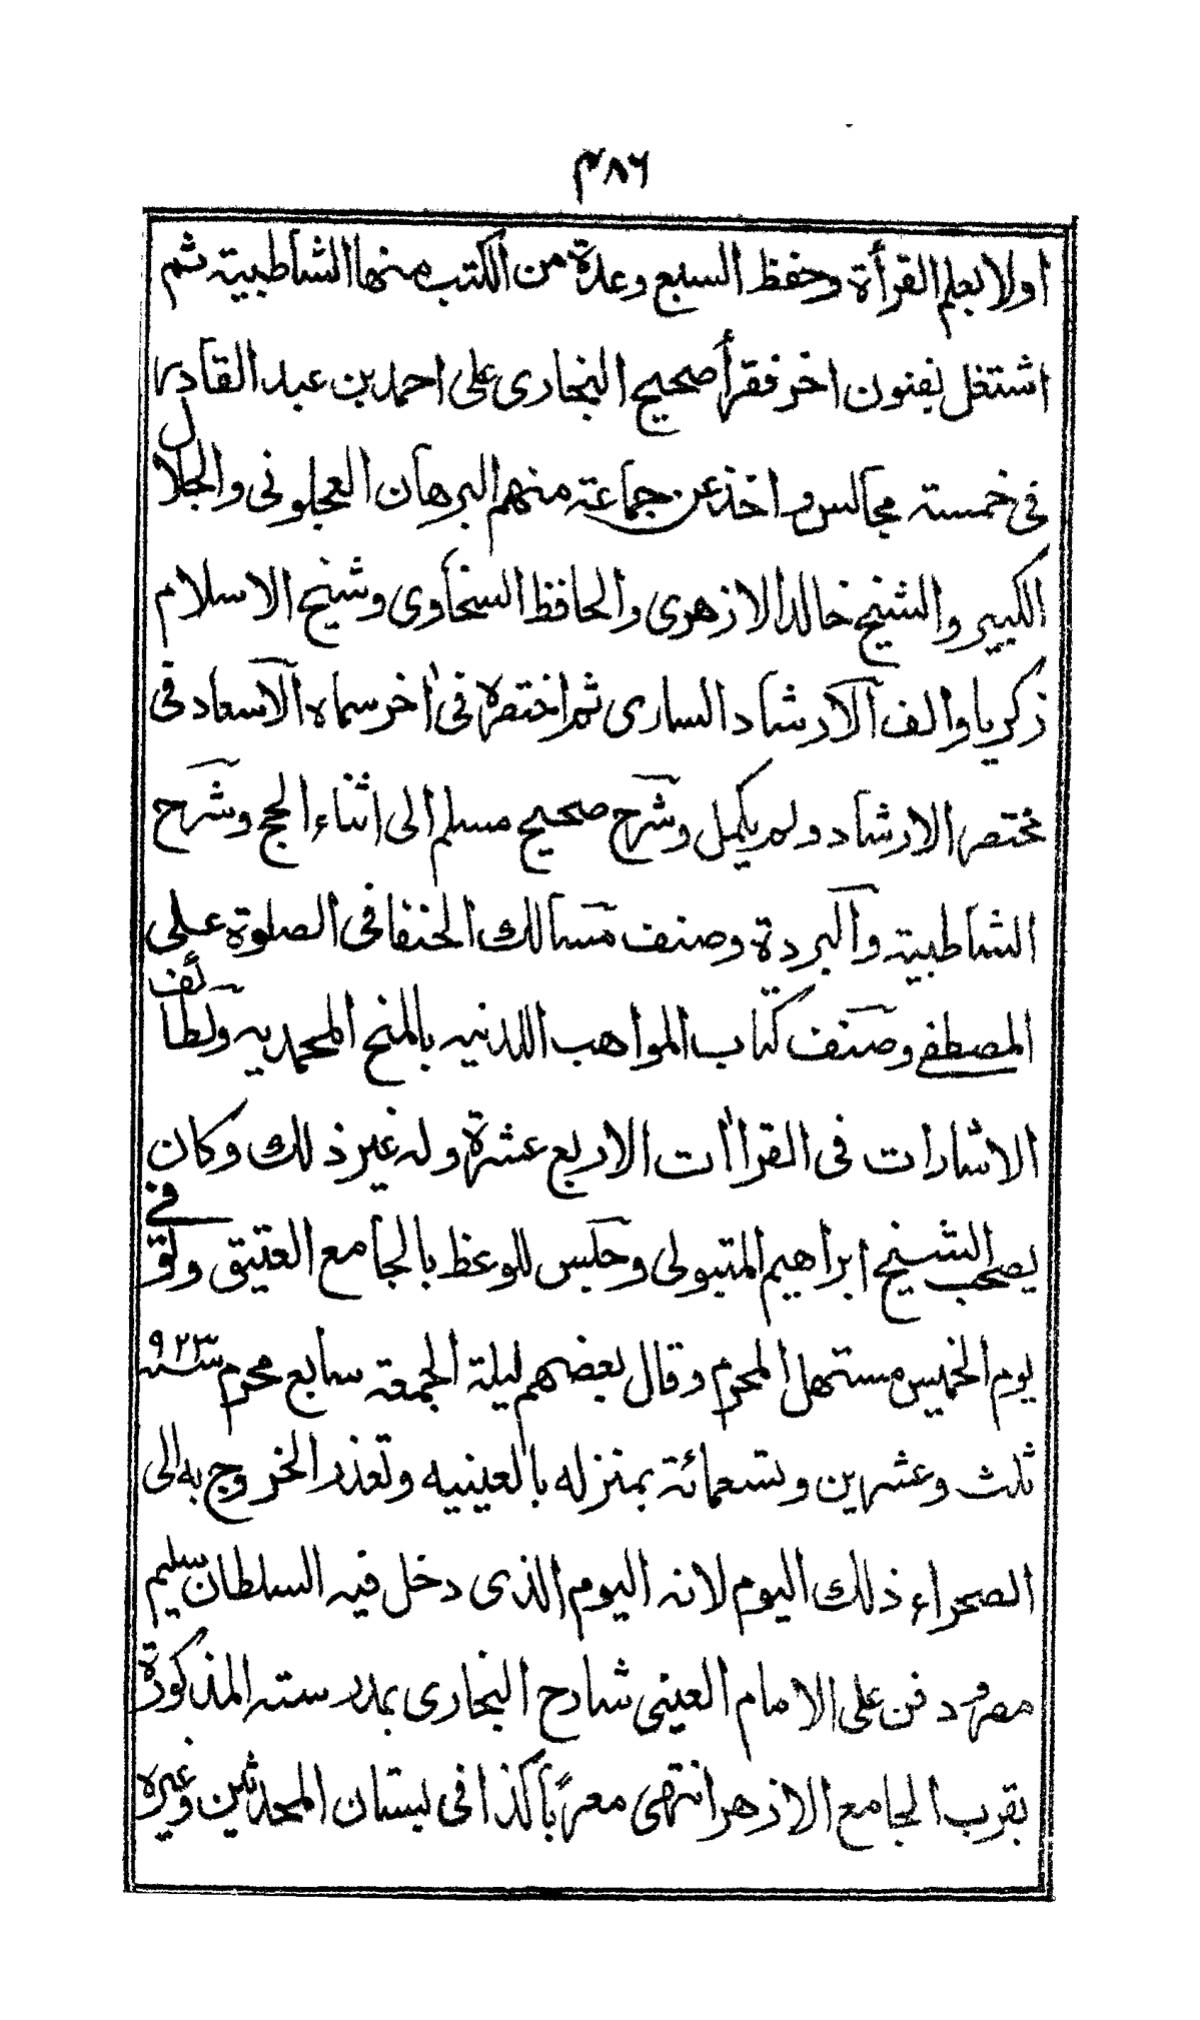 ۴۸۶
اولا بعلم القرأة وحفظ السبع وعدة من الكتب منها الشاطبية ثم
اشتغل بفنون اخر فقرأ صحيح البخارى على احمد بن عبد القادر
فى خمسة مجالس واخذ عن جماعة منهم البرهان العجلونى والجلال
الكبير والشيخ خالد الازهرى والحافظ السخاوى وشيخ الاسلام
زكريا والف الارشاد السارى ثم اختصره فى اخر سماه الاسعاد فى
مختصر الارشاد ولم يكمل وشرح صحيح مسلم الى اثناء الحج وشرح
الشاطبية والبردة وصنف مسالك الحنفا فى الصلوة على
المصطفى وصنف كتاب المواهب اللدنيه بالمنح المحمديه ولطائف
الاشارات فى القراات الاربع عشرة وله غير ذلك وكان
يصحب الشيخ ابراهيم المتبولى وجلس للوعظ بالجامع العتيق وتوفى
يوم الخميس مستهل المحرم وقال بعضهم ليلة الجمعة سابع محرم سنه ۹۲۳
ثلث وعشرين وتسعمائة بمنزله بالعينيه وتعذر الخروج به الى
الصحراء ذلك اليوم لانه اليوم الذى دخل فيه السلطان سليم
مصر ودفن على الامام العينى شارح البخارى بمدرسته المذكورة
بقرب الجامع الازهر انتهى معربا كذا فى بستان المحدثين وغيره